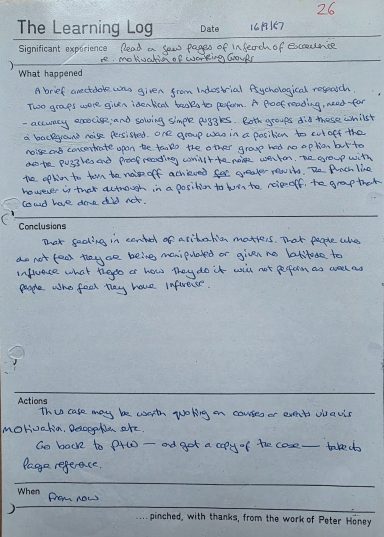 26
The Learning Log Date 16/9/87
Significant experience Read a few pages of In Search of Excellence
re. motivation of working Groups
What happened
A brief anecdote was given from Industrial Psychological research.
Two groups were given identical tasks to perform. A Proof reading, need-for
-accuracy exercise, and solving simple puzzles. Both groups did these whilst
a background noise persisted. One group was in a position to cut off the
noise and concentrate upon the tasks the other group had no option but to
do the puzzles and proof reading whilst the noise went on. The group with
the option to turn the noise off achieved far greater results. The Punch line
however is that although in a position to turn the noise off. the group that
could have done did not.
Conclusions
That feeling in control of a situation matters. That people who
do not feel they are being manipulated or given no latitude to
influence what they do or how they do it will not perform as well as
people who feel they have influence.
Actions
This case may be worth quoting on courses or events vis a vis
Motivation. Delegation etc.
Go back to P+W — and get a copy of the case — take its
Page reference.
When From now
....pinched, with thanks, from the work of Peter Honey